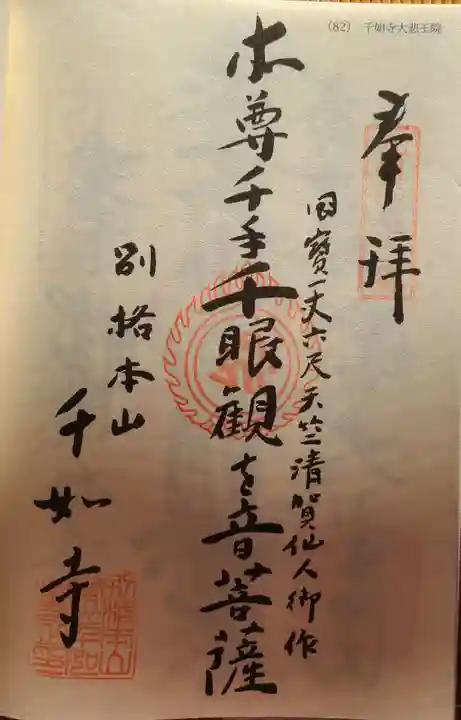 (82) 千如寺大悲王院
奉拝
国寶一丈六尺天竺清賀仙人御作
本尊千手千眼観世音菩薩
別格本山
千如寺